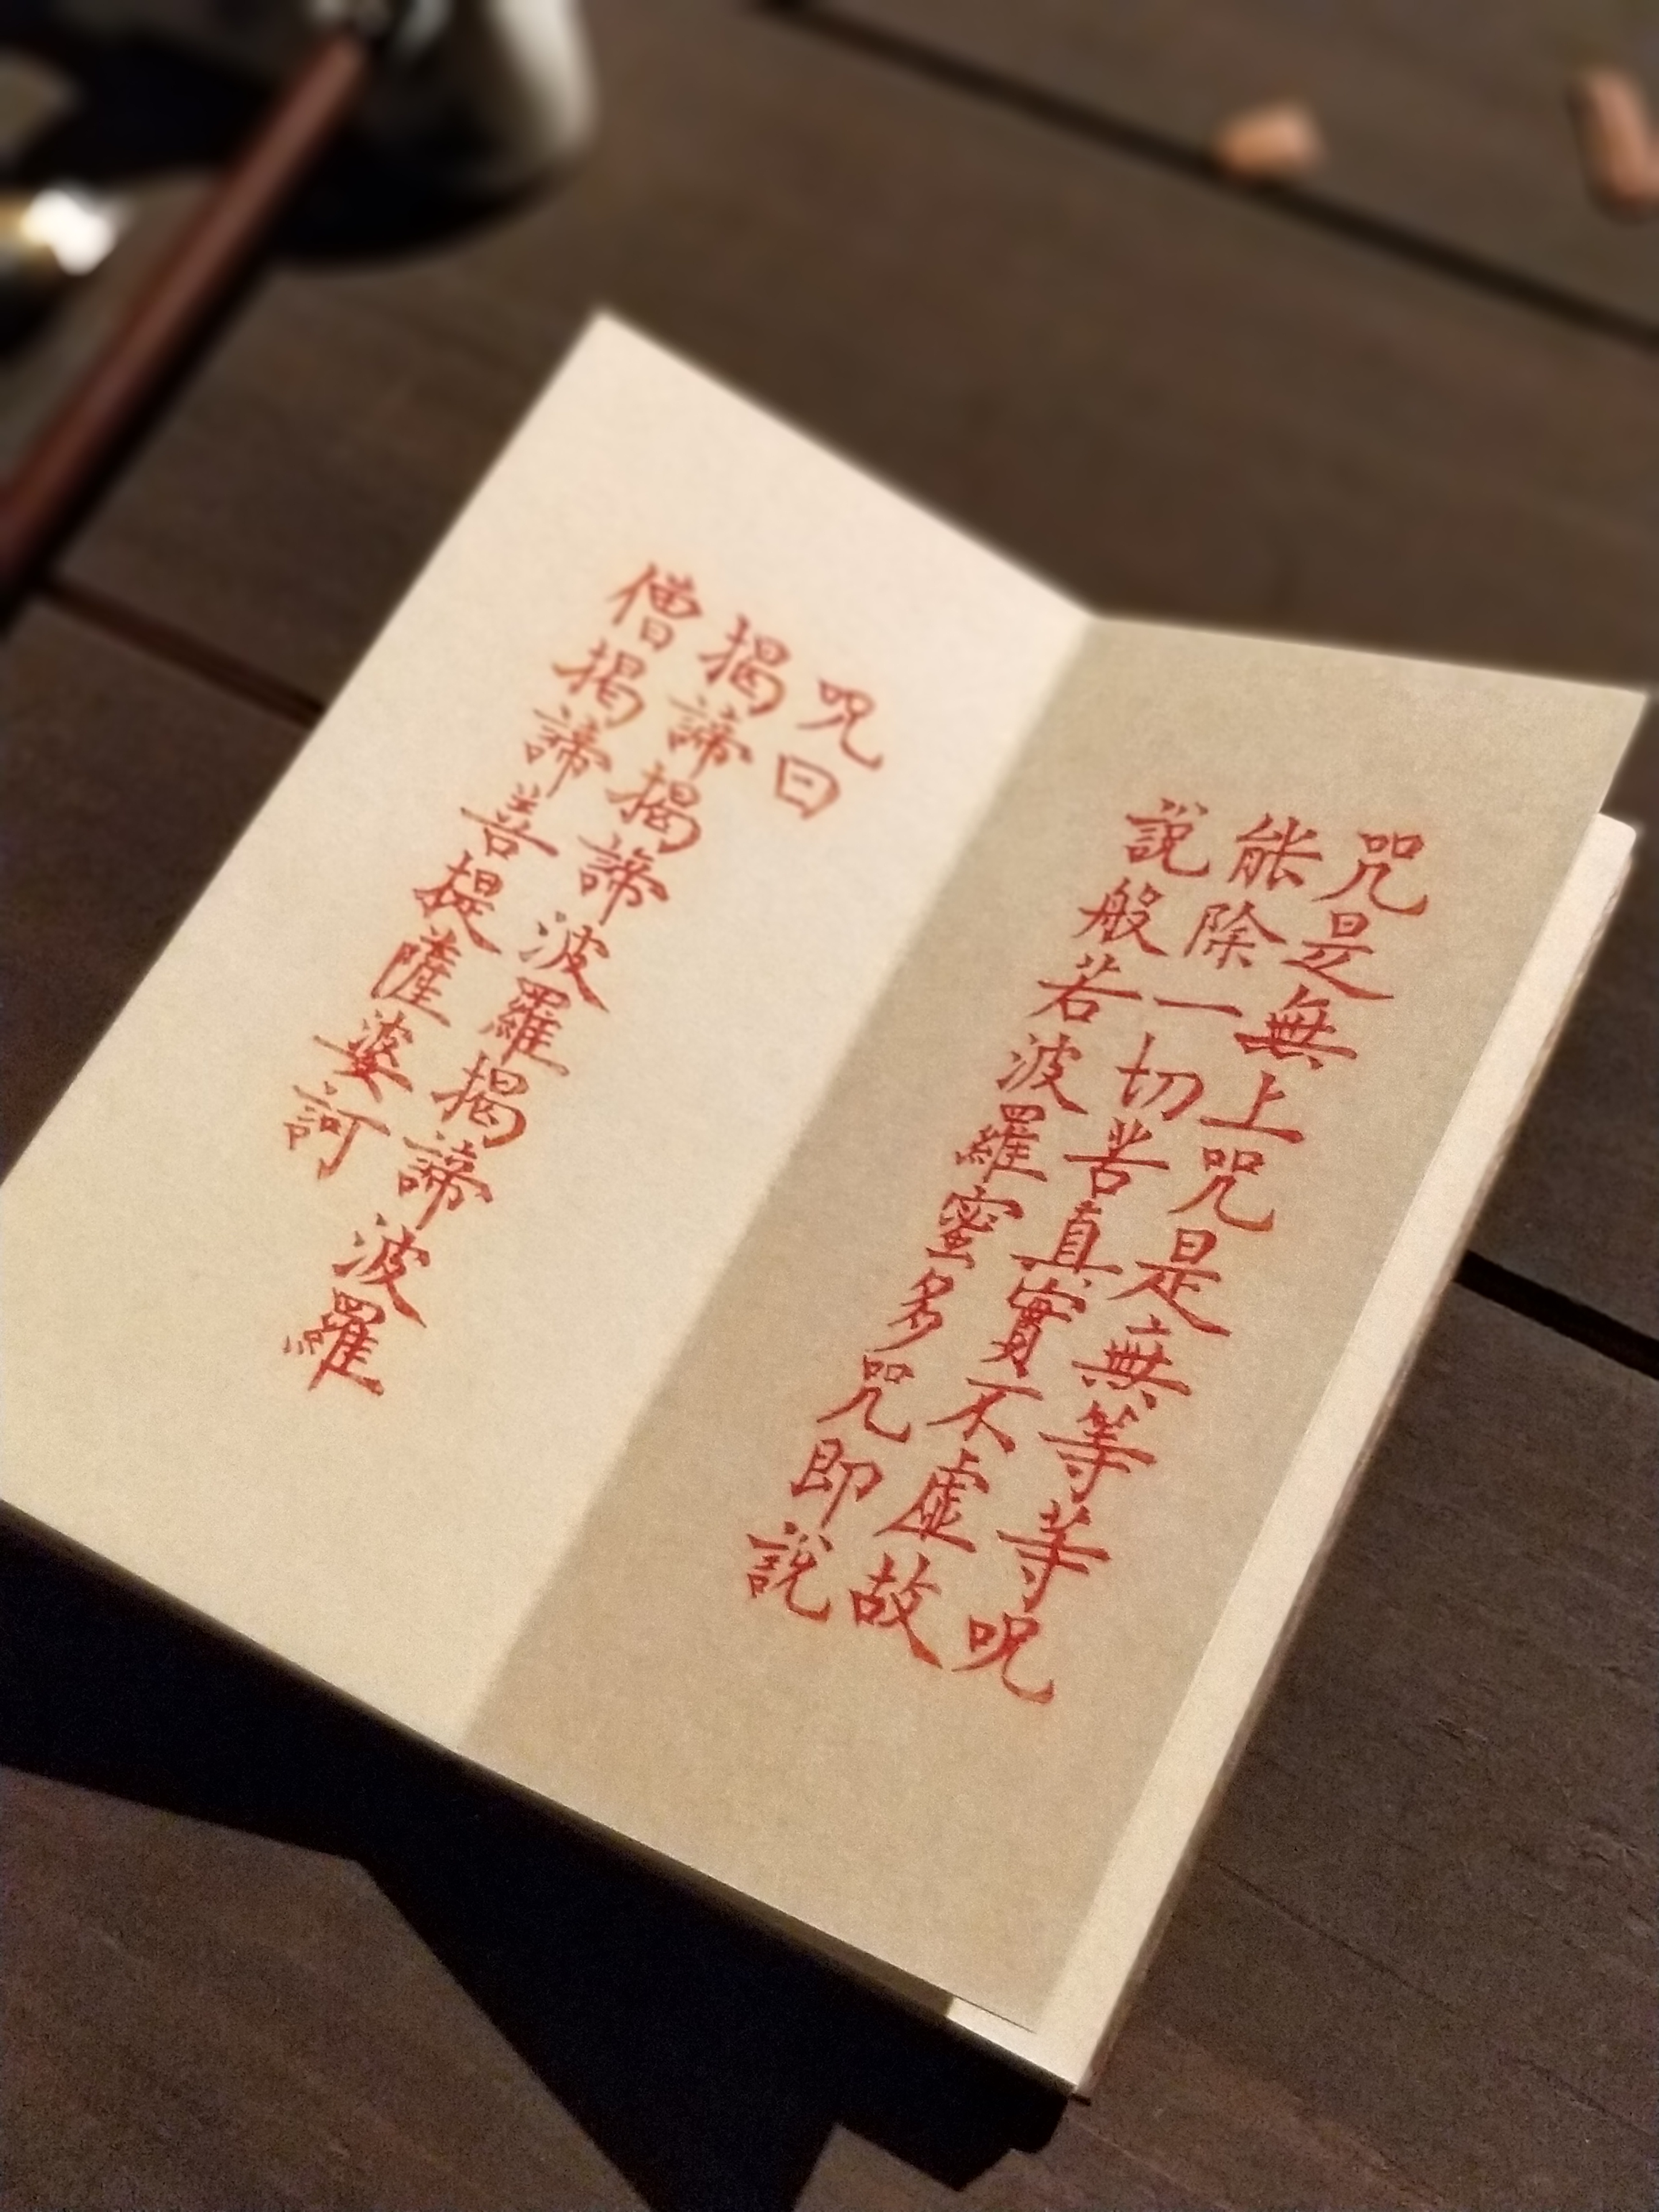 咒是無上咒是無等等呪
能除一切苦真實不虛故
說般若波羅蜜多咒即說
呪曰
揭諦揭諦波羅揭諦波羅
僧揭諦菩提薩婆訶